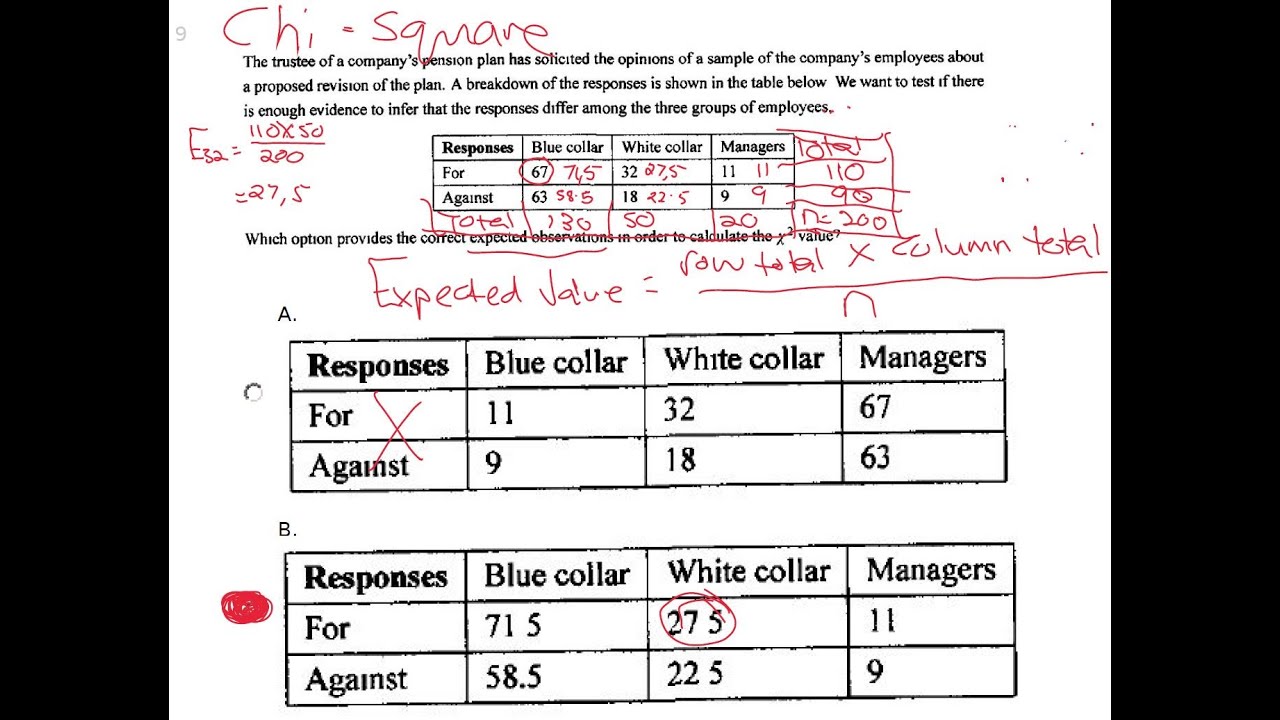 9
Chi - Square
The trustee of a company's pension plan has solicited the opinions of a sample of the company's employees about
a proposed revision of the plan. A breakdown of the responses is shown in the table below We want to test if there
is enough evidence to infer that the responses differ among the three groups of employees.
E32 = 110 x 50
200
= 27,5
Responses Blue collar White collar Managers Total
For 67 71,5 32 27,5 11 11 110
Against 63 58.5 18 22.5 9 9 90
Total 130 50 20 n = 200
Which option provides the correct expected observations in order to calculate the χ² value?
Expected Value = row total x column total
n
A.
Responses Blue collar White collar Managers
For 11 32 67
Against 9 18 63
B.
Responses Blue collar White collar Managers
For 71 5 27 5 11
Against 58.5 22 5 9